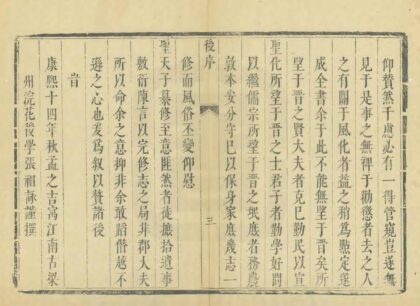 仰贊然千慮必有一得管窺豈遂無
見于是事之無裨于勸懲者去之人
之有關于風化者益之稍為點定遂
成全書余于此不能無望于晉矣所
望于晉之賢大夫者克巳勤民以宣
聖化所望于晉之士君子者勤學好問
以繼儒宗所望于晉之氓庶者務農
敦本安分守巳以保身家庶幾志一
後序
三
修而風俗丕變仰慰
聖天子纂修至意匪然者徒摭拾遺事
敷衍陳言以完修志之局非郡大夫
所以命余之意抑非余敢蹈僭越不
遜之心也爰為叙以贊諸後
旹
康熙十四年秋孟之吉寓江南古梁
州浣花後學張祖詠謹撰